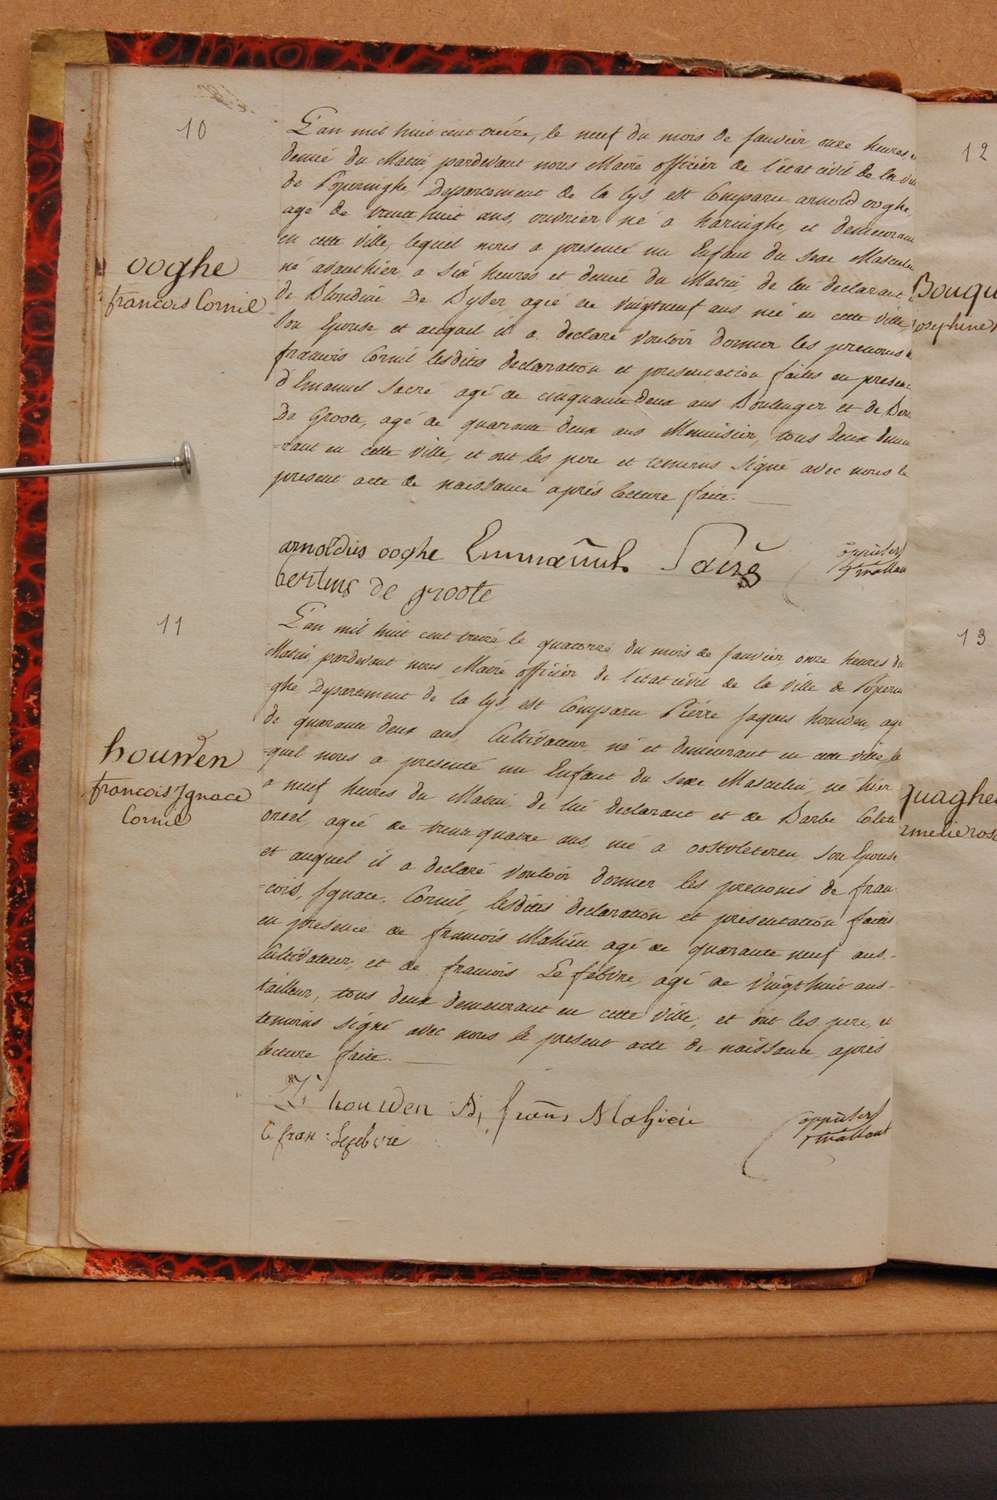 10
L'an mil huit cent treize, le neuf du mois de Janvier onze heures et
demie du Matin pardevant nous Maire officier de l'état civil de la ville
de Poperinghe Departement de la Lys est Comparu arnold ooghe,
agé de trente huit ans, ouvrier né a haringhe, et demeurant
en cette ville, lequel nous a presenté un Enfant du sexe Masculin
né avanthier a six heures et demie du Matin de lui declarant
de Blondine De Dyser agée de vingtneuf ans née en cette ville
Son Epouse et auquel il a declaré vouloir donner les prenoms de
francois Cornil lesdites declaration et presentation faites en presence
d'Emanuel Sacré agé de cinquante deux ans Boulenger et de
De Groote, agé de quarante deux ans Menuisier, tous deux demeu
-rant en cette ville, et ont les pere et temoins signé avec nous le
present acte de naissance après lecture faite.
ooghe
francois Cornil
arnoldus ooghe Emmanuel
bertinus de groote
11
L'an mil huit cent treize le quatorze du mois de Janvier onze heures du
Matin pardevant nous Maire officier de l'état civil de la ville de Poperin
ghe Departement de la Lys, est Comparu Pierre Jaques houwen, agé
de quarante deux ans, Cultivateur né et demeurant en cette ville le
-quel nous a presenté un Enfant du sexe Masculin, né hier
a neuf heures du Matin de lui declarant et de Barbe Colette
agée de trente quatre ans, née a oostvleteren Son Epouse
et auquel il a declaré vouloir donner les prenoms de fran
-cois, Ignace, Cornil, lesdites declaration et presentation faites
en presence de francois Mahieu agé de quarante neuf ans,
Cultivateur, et de francois Le febvre, agé de vingthuit ans
tailleur, tous deux demeurant en cette ville, et ont les pere, et
temoins signé avec nous le present acte de naissance après
lecture faite.
houwen
francois Ignace
Cornil
houwen frans Mahieu
fran: Lefebvre
12
Bouqu
osephine
13
quaghe
melie ros